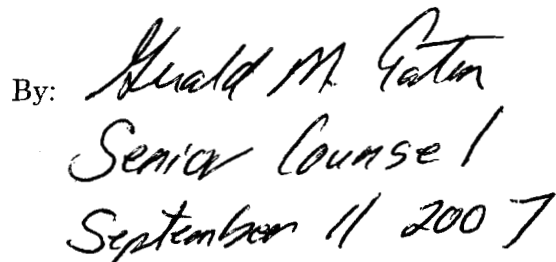 By: Gerald M. Eaton
Senior Counsel
September 11 2007